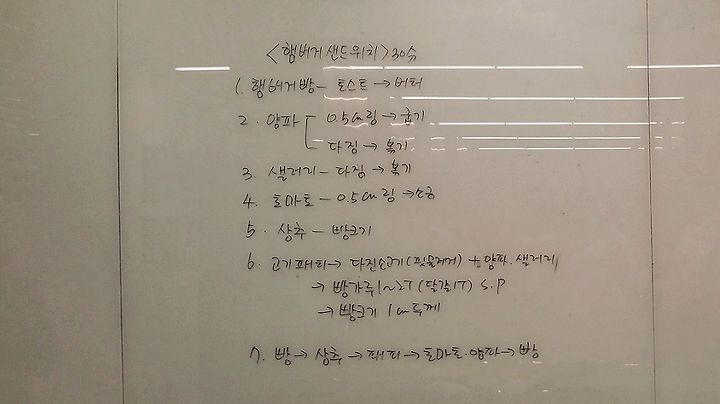 <햄버거 샌드위치> 30分
1. 햄버거빵 - 토스트 → 버터
2. 양파 0.5cm 링 → 굽기
다짐 → 볶기
3. 샐러리 - 다짐 → 볶기
4. 토마토 - 0.5cm 링 → 소금
5. 상추 - 빵크기
6. 고기패티 → 다진소고기(핏물제거) + 양파.샐러리
→ 빵가루 1~2T (달걀1T) S.P
→ 빵크기 1cm 두께
7. 빵 → 상추 → 패티 → 토마토.양파 → 빵